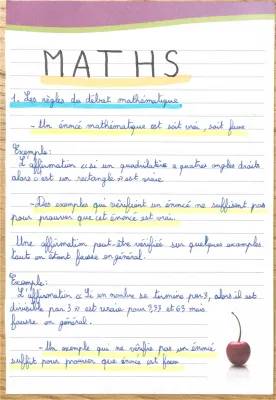 MATHS
1. Les règles du débat mathématique
- Un énnoé mathématique est soit vrai, soit faux
Exemple:
L'affirmation « si un quadrilatère a quatres angles droits
alors c'est un rectangle » est vraie
- Des exemples qui vérifient un énnoé ne suffisent pas
pour prouver que cet énnoé est vrai.
Une affirmation peut-être vérifiée sur quelques exemples
tout en étant fausse en général.
Exemple:
L'affirmation « Si un nombre se termine par 3, alors il est
divisible par 3 » est vraie pour 3,33 et 63 mais
fausse en général.
- Un exemple qui ne vérifie pas un énnoé
suffit pour prouver que énnoé est faux